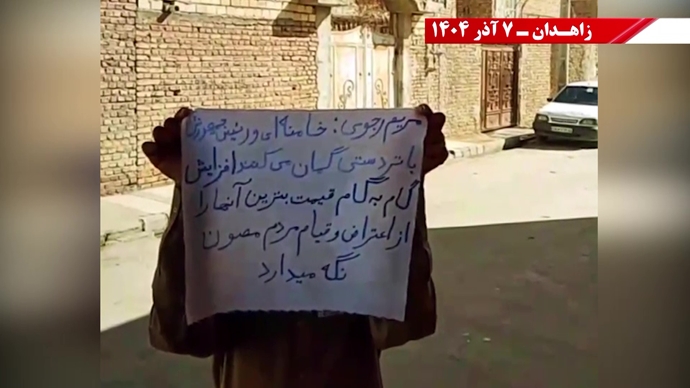 زاهـدان ـ ۷ آذر ۱۴۰۴
مریم رجوی: خامنه‌ای و رئیس جمهورش
با تردستی گمان می‌کنند افزایش
گام به گام قیمت بنزین آنها را
از اعتراض و قیام مردم مصون
نگه میدارد